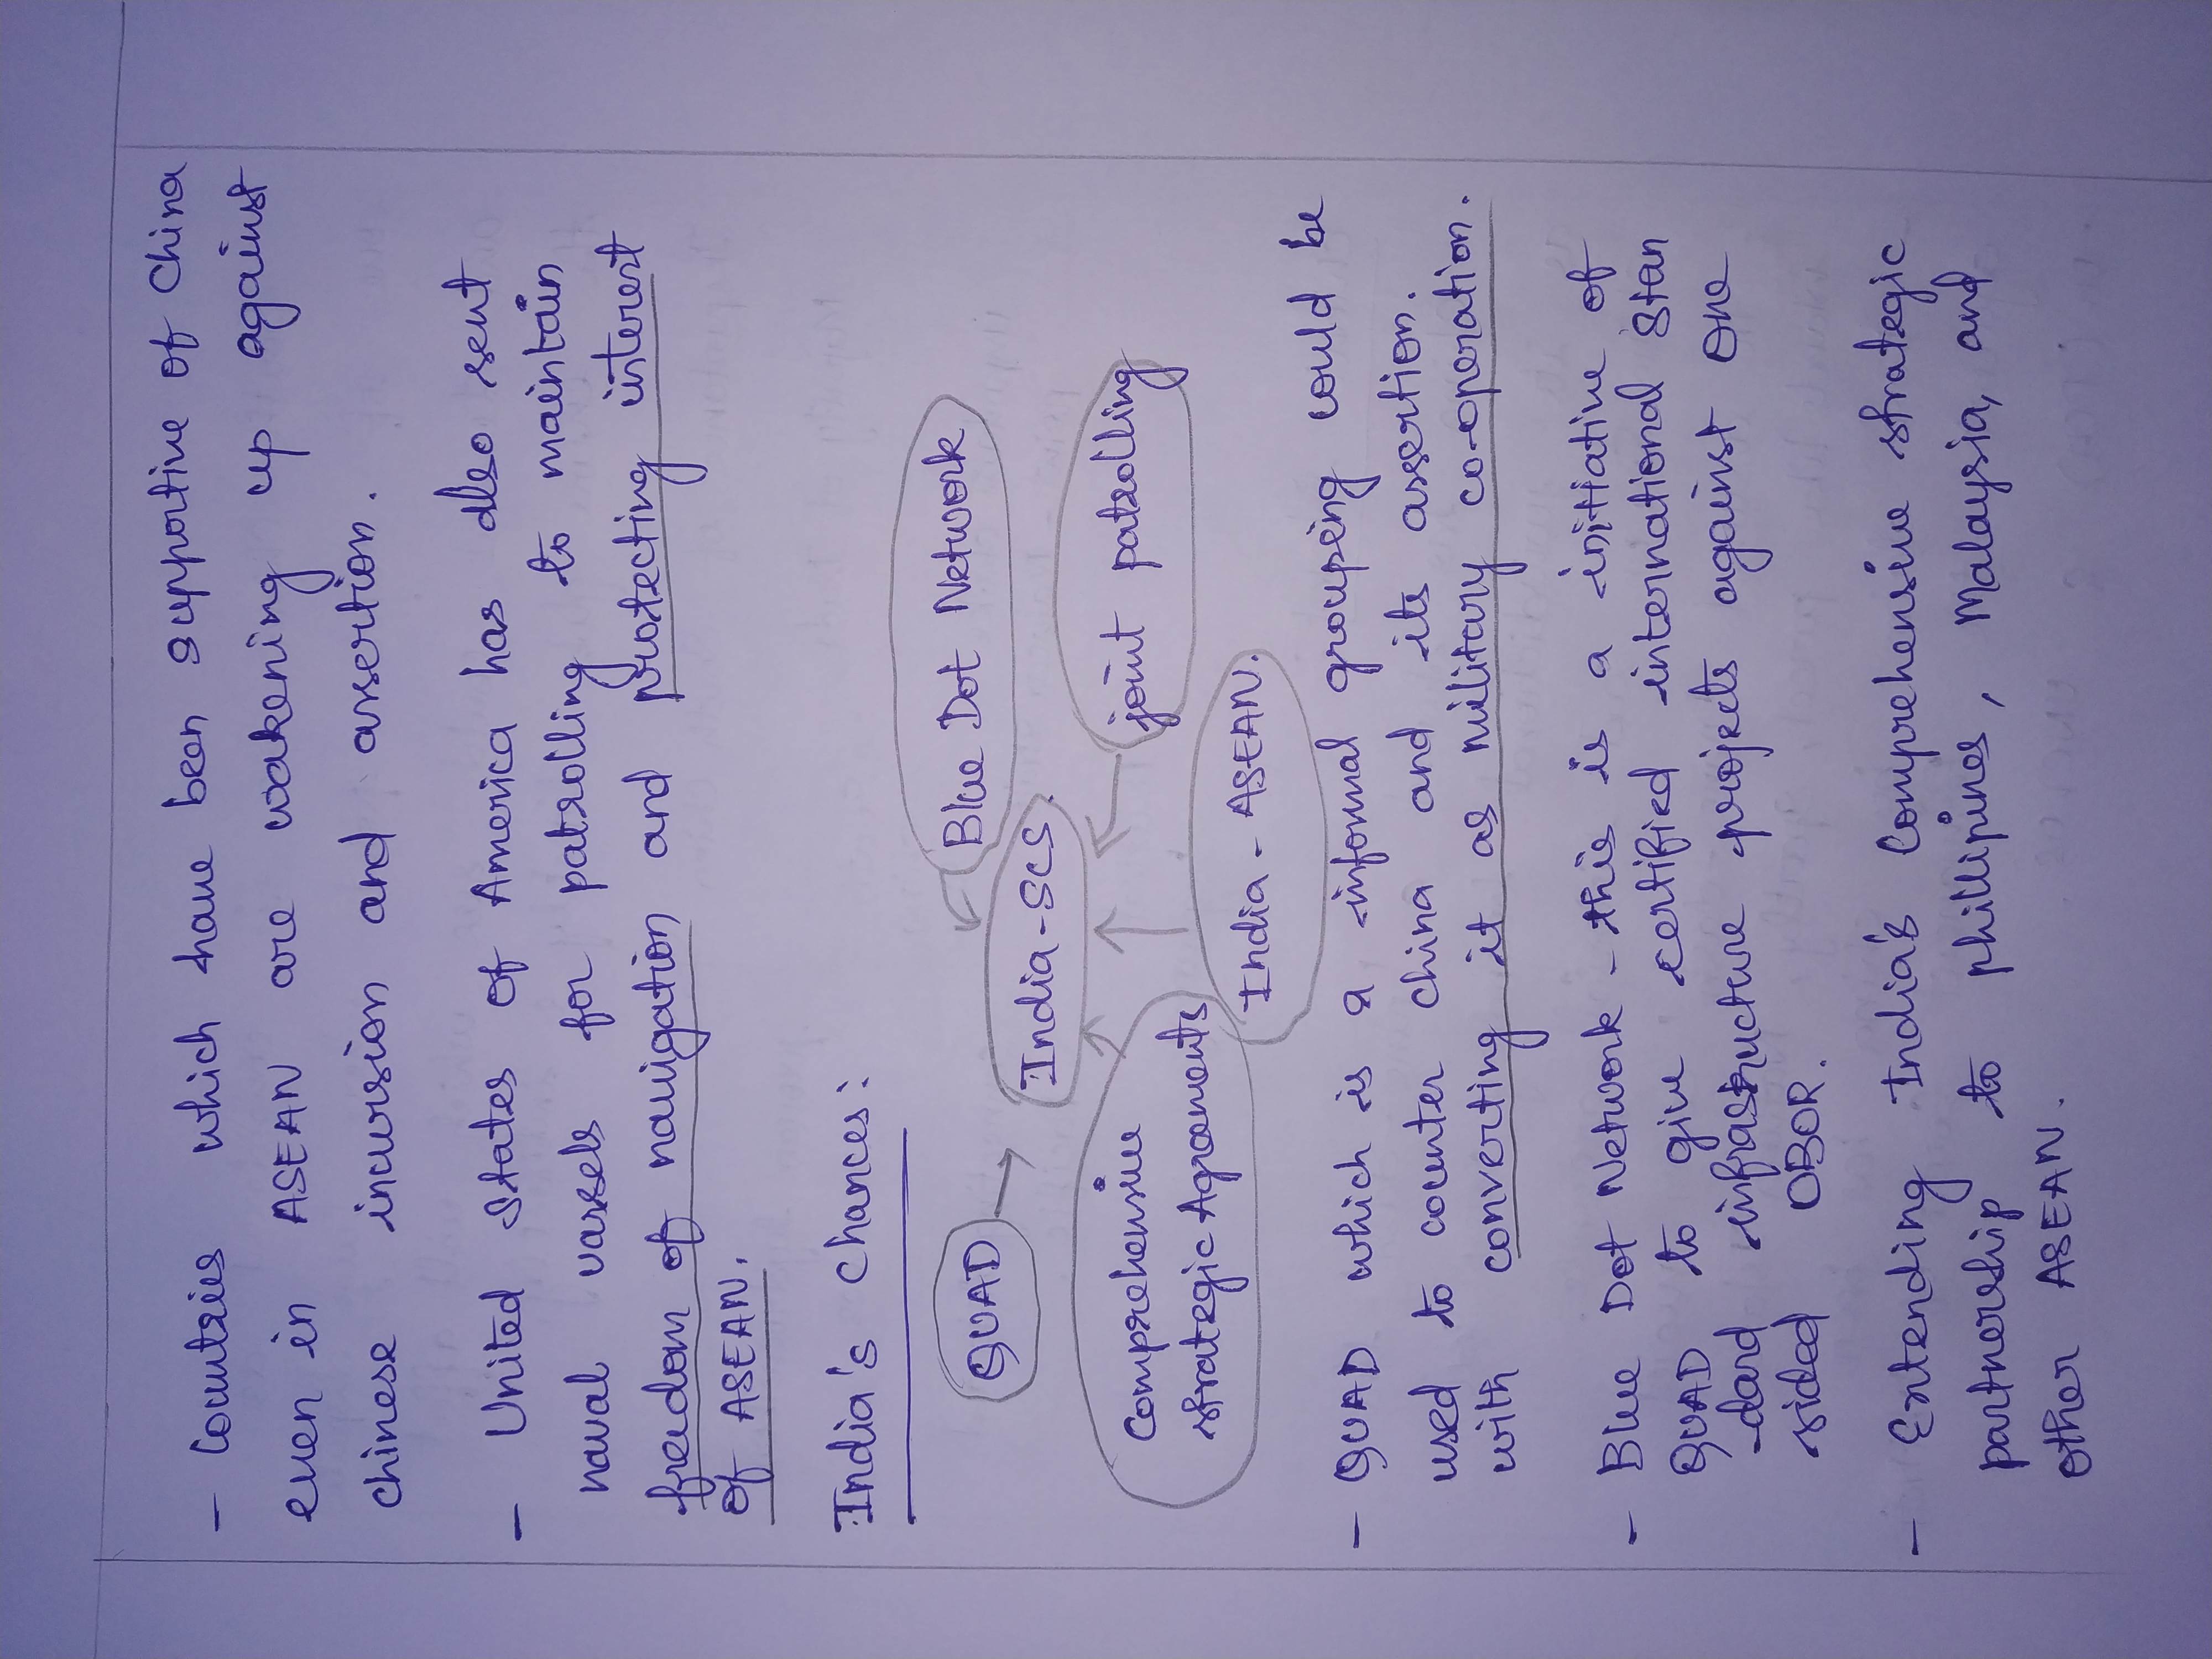 - Countries which have been supportive of China
even in ASEAN are wakening up against
chinese incursion and assertion.
- United States of America has also sent
naval vassels for patrolling to maintain
freedom of navigation and protecting interest
of ASEAN.
India's chances:
QUAD
India-SCS.
Blue Dot Network
Comprehensive
strategic Agreements
India - ASEAN.
joint patrolling
- QUAD which is a informal grouping could be
used to counter china and its assertion.
with converting it as military co-operation.
- Blue Dot Network - this is a initiative of
QUAD to give certified international stan
-dard infrastructure projects against one
sided OBOR.
- Extending India's Comprehensive strategic
partnership to phillipines, Malaysia, and
other ASEAN.